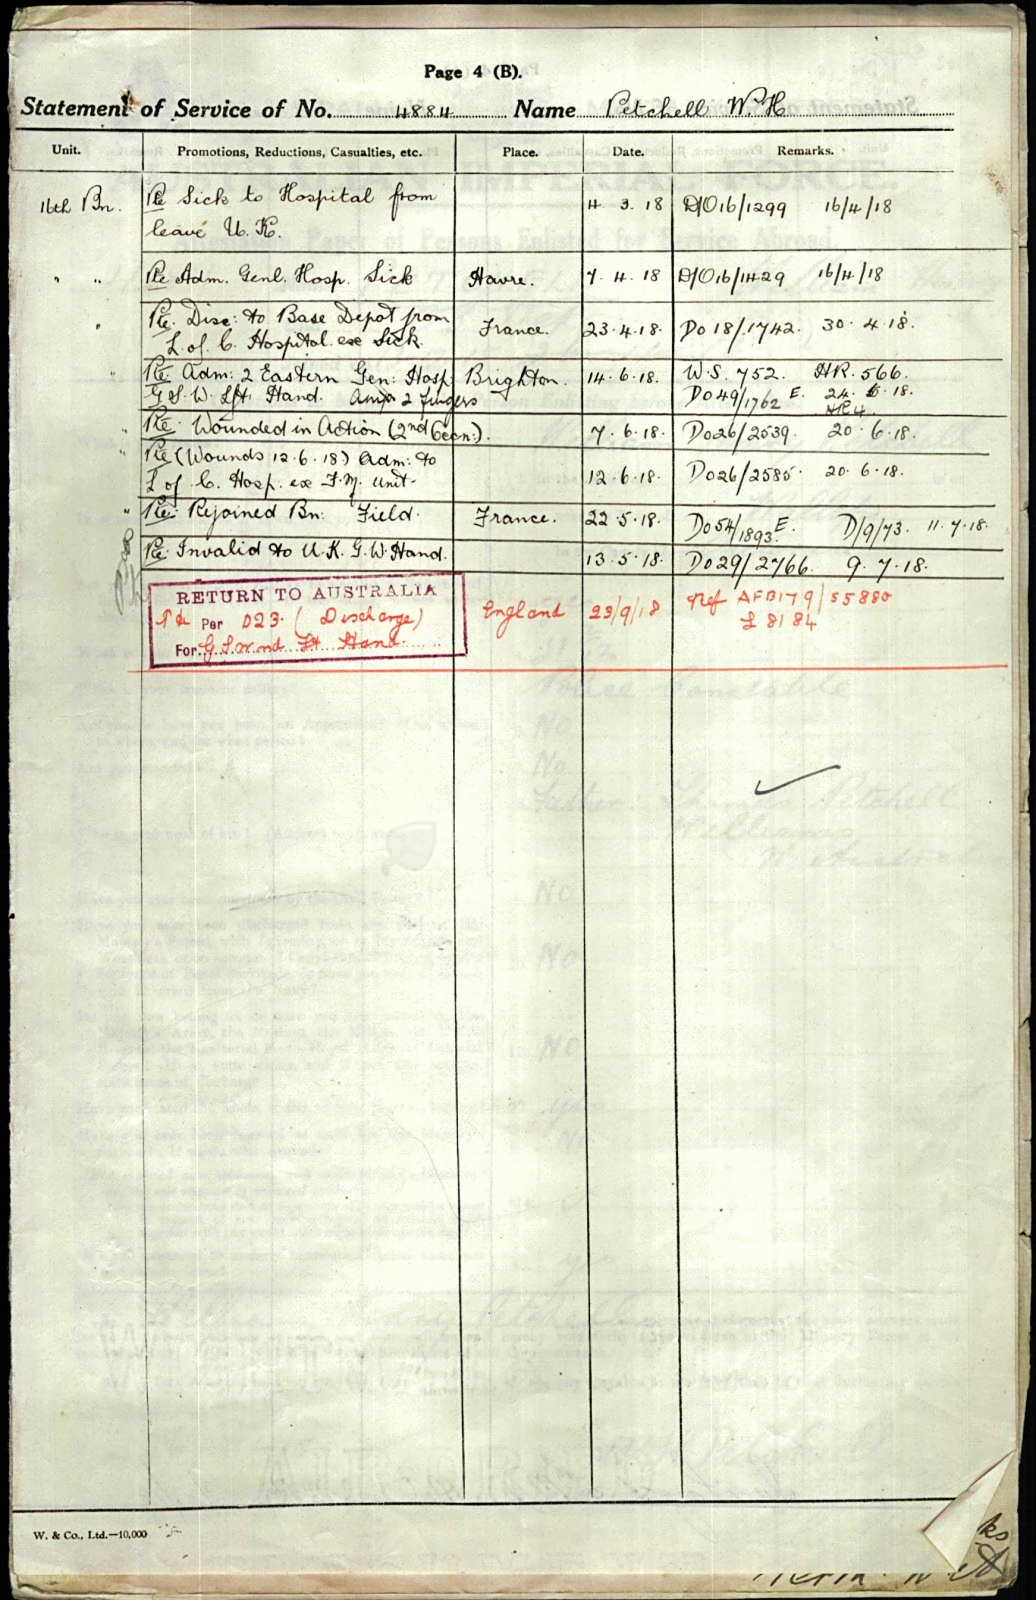 Page 4 (B).
Statement of Service of No. 4884 Name Petchell W. H
Unit. Promotions, Reductions, Casualties, etc. Place. Date. Remarks.
16th Bn. Pte Sick to Hospital from 4 3. 18 D/O 16/1299 16/4/18
leave U. K.
" " Pte Adm. Genl. Hosp. Sick Havre. 7. 4. 18 D/O 16/1429 16/4/18
" Pte. Disc: to Base Depot from France. 23.4.18. Do 18/1742. 30. 4.18.
L. of C. Hospital. exe Sick.
" Pte. Adm: 2 Eastern Gen: Hosp Brighton. 14.6.18. W.S. 752. HR. 566.
G.S.W. Lft. Hand. Amp 2 fingers Do 49/1762 E. 24. 6. 18.
" Pte. Wounded in Action (2nd Occn:). 7.6.18. Do 26/2539. 20.6.18.
" Pte (Wounds 12.6.18) Adm: to
L of C. Hosp. ex F.M. Unit. 12.6.18. Do 26/2585. 20.6.18.
" Pte. Rejoined Bn: Field. France. 22.5.18. Do 54/1893 E. D/9/73. 11.7.18.
Pte. Invalid to U.K. G.W. Hand. 13.5.18. Do 29/2766. 9.7.18.
RETURN TO AUSTRALIA
Per D23. (Discharge) England 23/9/18 Ref AFB179/55880
For G.S.Wnd Lt Hand. L 8184
W. & Co., Ltd.—10,000
ks